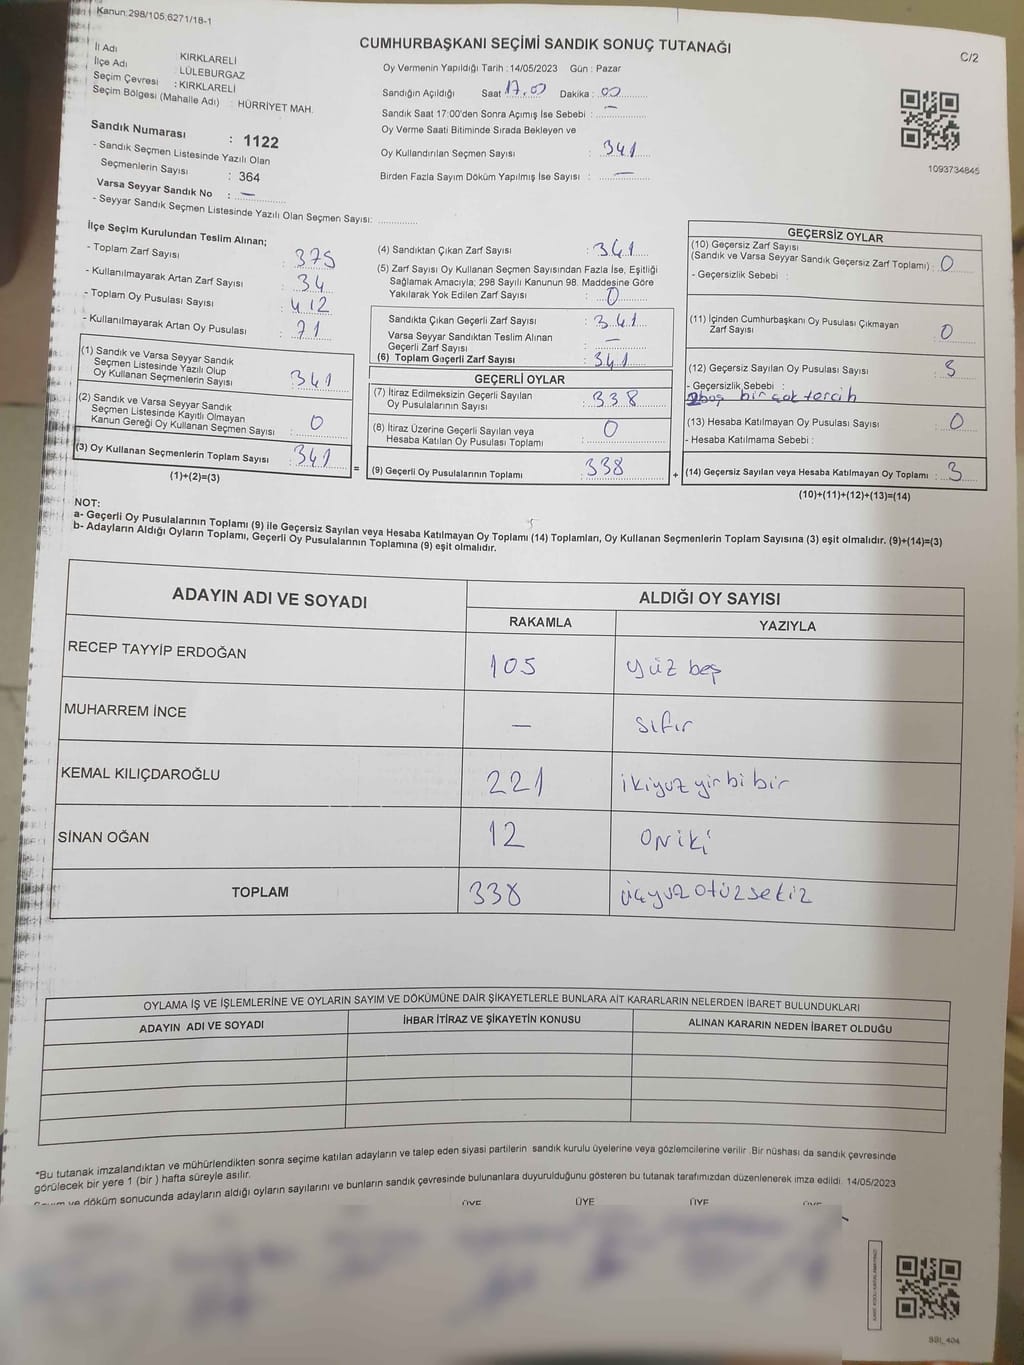 Kanun:298/105,6271/18-1
CUMHURBAŞKANI SEÇİMİ SANDIK SONUÇ TUTANAĞI
C/2
İl Adı KIRKLARELİ
İlçe Adı LÜLEBURGAZ
Seçim Çevresi : KIRKLARELİ
Seçim Bölgesi (Mahalle Adı) : HÜRRİYET MAH.
Sandık Numarası : 1122
- Sandık Seçmen Listesinde Yazılı Olan
Seçmenlerin Sayısı : 364
Varsa Seyyar Sandık No : —
- Seyyar Sandık Seçmen Listesinde Yazılı Olan Seçmen Sayısı:
Oy Vermenin Yapıldığı Tarih : 14/05/2023 Gün : Pazar
Sandığın Açıldığı Saat 17.00 Dakika : 00
Sandık Saat 17:00'den Sonra Açımış İse Sebebi : —
Oy Verme Saati Bitiminde Sırada Bekleyen ve
Oy Kullandırılan Seçmen Sayısı : 341
Birden Fazla Sayım Döküm Yapılmış İse Sayısı : —
1093734845
İlçe Seçim Kurulundan Teslim Alınan;
- Toplam Zarf Sayısı : 375
- Kullanılmayarak Artan Zarf Sayısı : 34
- Toplam Oy Pusulası Sayısı : 412
- Kullanılmayarak Artan Oy Pusulası : 71
(1) Sandık ve Varsa Seyyar Sandık
Seçmen Listesinde Yazılı Olup
Oy Kullanan Seçmenlerin Sayısı : 341
(2) Sandık ve Varsa Seyyar Sandık
Seçmen Listesinde Kayıtlı Olmayan
Kanun Gereği Oy Kullanan Seçmen Sayısı : 0
(3) Oy Kullanan Seçmenlerin Toplam Sayısı : 341
(1)+(2)=(3)
(4) Sandıktan Çıkan Zarf Sayısı : 341
(5) Zarf Sayısı Oy Kullanan Seçmen Sayısından Fazla İse, Eşitliği
Sağlamak Amacıyla; 298 Sayılı Kanunun 98. Maddesine Göre
Yakılarak Yok Edilen Zarf Sayısı : 0
Sandıkta Çıkan Geçerli Zarf Sayısı : 341
Varsa Seyyar Sandıktan Teslim Alınan
Geçerli Zarf Sayısı : —
(6) Toplam Geçerli Zarf Sayısı : 341
GEÇERLİ OYLAR
(7) İtiraz Edilmeksizin Geçerli Sayılan
Oy Pusulalarının Sayısı : 338
(8) İtiraz Üzerine Geçerli Sayılan veya
Hesaba Katılan Oy Pusulası Toplamı : 0
= (9) Geçerli Oy Pusulalarının Toplamı : 338
GEÇERSİZ OYLAR
(10) Geçersiz Zarf Sayısı
(Sandık ve Varsa Seyyar Sandık Geçersiz Zarf Toplamı) : 0
- Geçersizlik Sebebi :
(11) İçinden Cumhurbaşkanı Oy Pusulası Çıkmayan
Zarf Sayısı : 0
(12) Geçersiz Sayılan Oy Pusulası Sayısı : 3
- Geçersizlik Sebebi :
2boş bir çok tercih
(13) Hesaba Katılmayan Oy Pusulası Sayısı : 0
- Hesaba Katılmama Sebebi :
+ (14) Geçersiz Sayılan veya Hesaba Katılmayan Oy Toplamı : 3
(10)+(11)+(12)+(13)=(14)
NOT:
a- Geçerli Oy Pusulalarının Toplamı (9) ile Geçersiz Sayılan veya Hesaba Katılmayan Oy Toplamı (14) Toplamları, Oy Kullanan Seçmenlerin Toplam Sayısına (3) eşit olmalıdır. (9)+(14)=(3)
b- Adayların Aldığı Oyların Toplamı, Geçerli Oy Pusulalarının Toplamına (9) eşit olmalıdır.
ADAYIN ADI VE SOYADI ALDIĞI OY SAYISI
RAKAMLA YAZIYLA
RECEP TAYYİP ERDOĞAN 105 yüz beş
MUHARREM İNCE — sıfır
KEMAL KILIÇDAROĞLU 221 ikiyuz yirbi bir
SİNAN OĞAN 12 oniki
TOPLAM 338 üçyuz otüzsekiz
OYLAMA İŞ VE İŞLEMLERİNE VE OYLARIN SAYIM VE DÖKÜMÜNE DAİR ŞİKAYETLERLE BUNLARA AİT KARARLARIN NELERDEN İBARET BULUNDUKLARI
ADAYIN ADI VE SOYADI İHBAR İTİRAZ VE ŞİKAYETİN KONUSU ALINAN KARARIN NEDEN İBARET OLDUĞU
*Bu tutanak imzalandıktan ve mühürlendikten sonra seçime katılan adayların ve talep eden siyasi partilerin sandık kurulu üyelerine veya gözlemcilerine verilir .Bir nüshası da sandık çevresinde
görülecek bir yere 1 (bir ) hafta süreyle asılır.
ve döküm sonucunda adayların aldığı oyların sayılarını ve bunların sandık çevresinde bulunanlara duyurulduğunu gösteren bu tutanak tarafımızdan düzenlenerek imza edildi. 14/05/2023
ÜYE ÜYE ÜYE
SSI_404